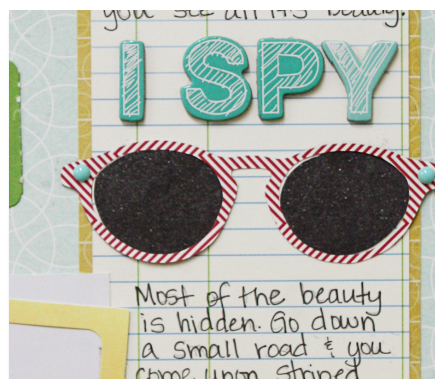 you see all its beauty.
I SPY
Most of the beauty
is hidden. Go down
a small road & you
come upon striped